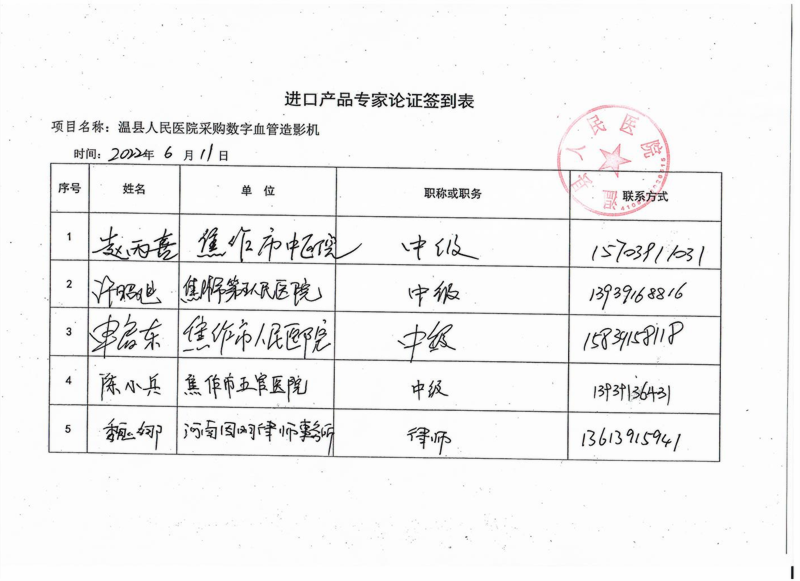 进口产品专家论证签到表
项目名称：温县人民医院采购数字血管造影机
时间：2022年 6 月 11 日
人民医院
序号 姓名 单 位 职称或职务 联系方式
1 赵丙喜 焦作市中医院 中级 15703911031
2 许昭旭 焦作市第五人民医院 中级 13939168816
3 申富东 焦作市人民医院 中级 15839158118
4 陈小兵 焦作市五官医院 中级 13939136431
5 河南国网律师事务所 律师 13613915941